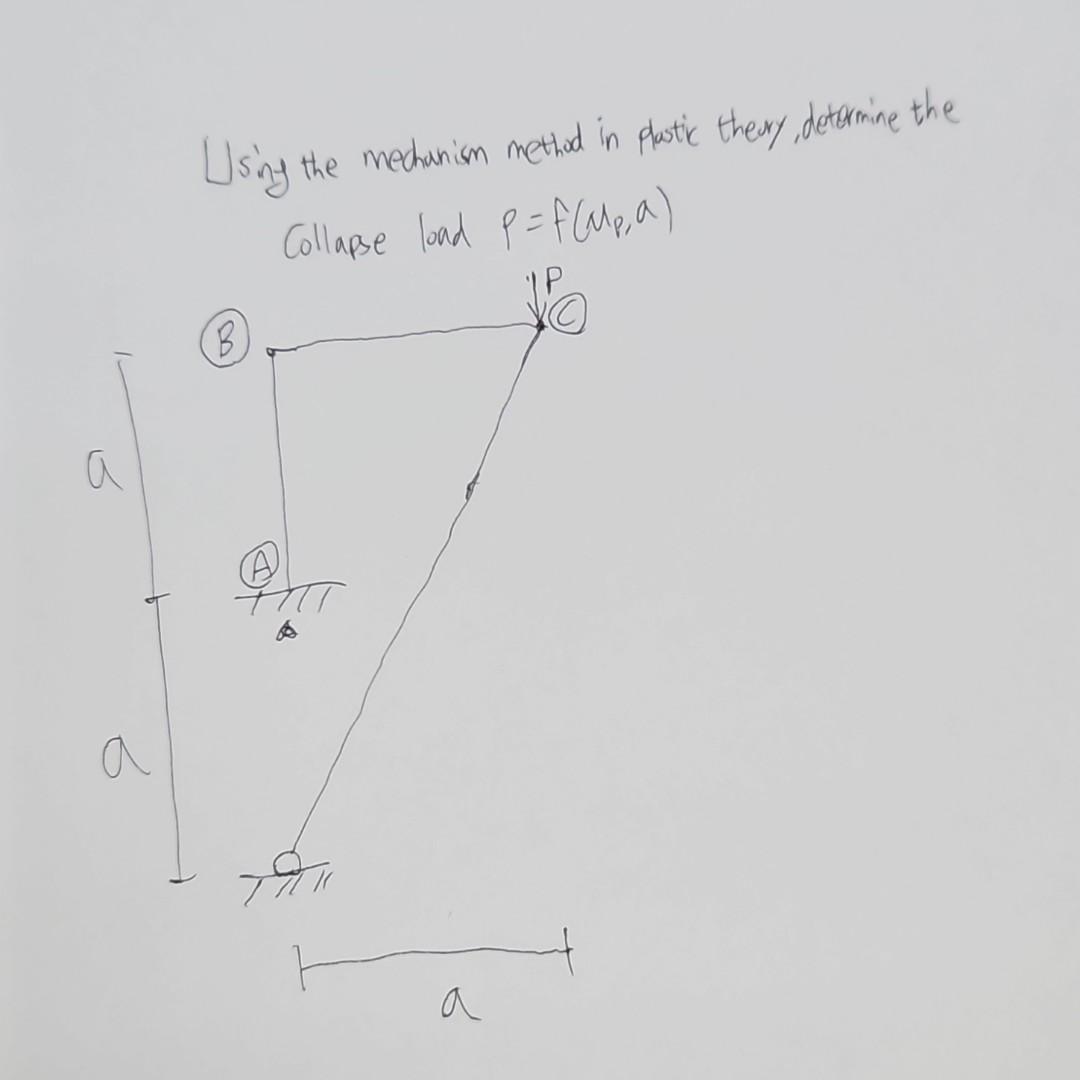 Using the mechanism method in plastic theory, determine the
Collapse load P = f(Mp, a)
P
B
C
a
A
a
a